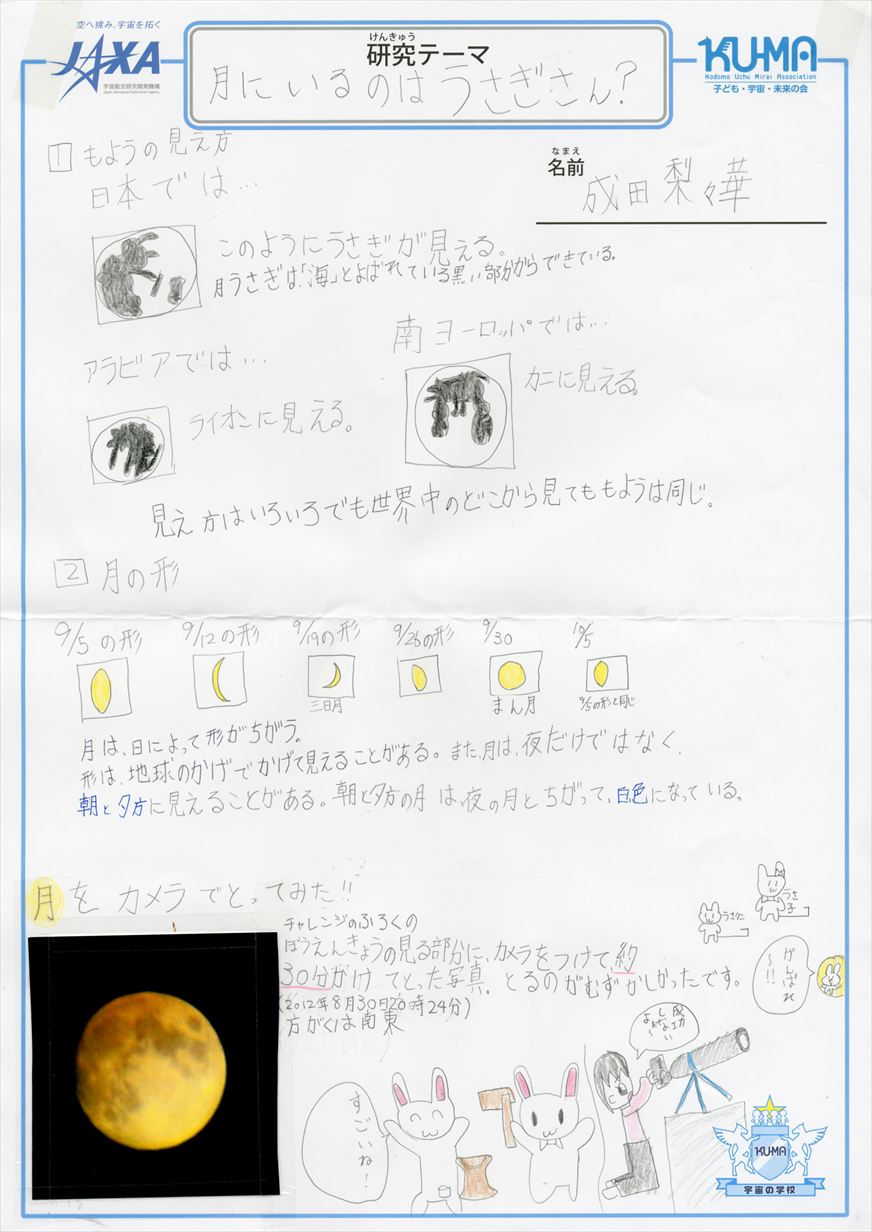 空へ挑み、宇宙を拓く
JAXA
宇宙航空研究開発機構
Japan Aerospace Exploration Agency
けんきゅう
研究テーマ
月にいるのはうさぎさん?
KU-MA
Kodomo Uchu Mirai Association
子ども・宇宙・未来の会
なまえ
名前
成田梨々華
1 もようの見え方
日本では…
このようにうさぎが見える。
月うさぎは、「海」とよばれている黒い部分からできている。
南ヨーロッパでは…
カニに見える。
アラビアでは…
ライオンに見える。
見え方はいろいろでも世界中のどこから見てももようは同じ。
2 月の形
9/5の形
9/12の形
9/19の形
9/26の形
9/30
10/5
三日月
まん月
9/5の形と同じ
月は、日によって形がちがう。
形は、地球のかげでかげて見えることがある。また、月は、夜だけではなく、
朝と夕方に見えることがある。朝と夕方の月は、夜の月とちがって、白色になっている。
月をカメラでとってみた!!
チャレンジのふろくの
ぼうえんきょうの見る部分に、カメラをつけて、約
30分かけてとった写真。とるのがむずかしかったです。
(2012年8月30日20時24分)
方がくは南東
うさ子
がんばれ〜!!
すごいね!
KU-MA
宇宙の学校